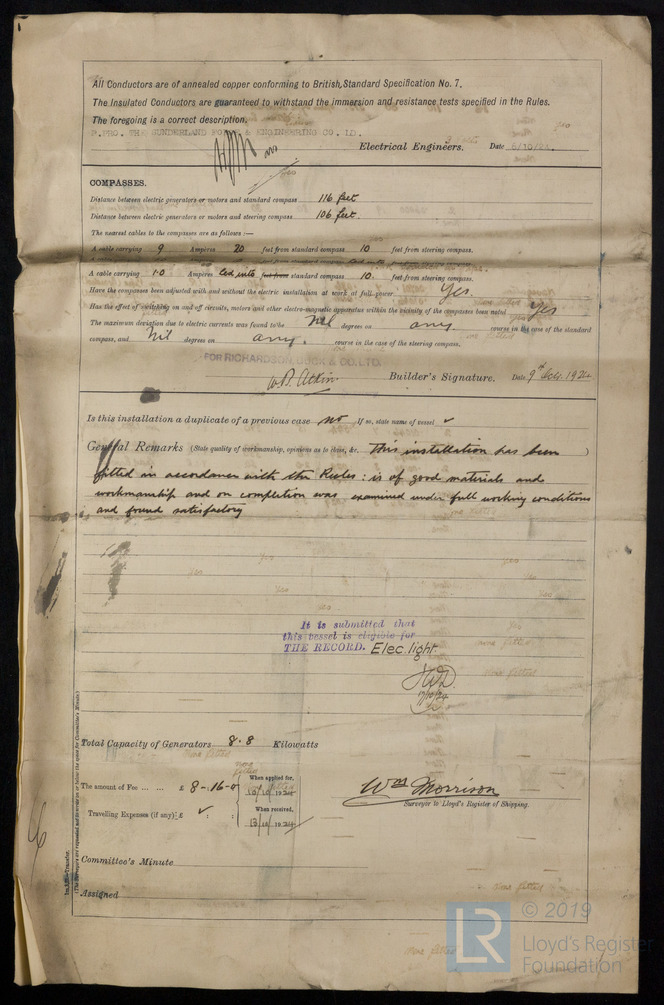 All Conductors are of annealed copper conforming to British Standard Specification No. 7.
The Insulated Conductors are guaranteed to withstand the immersion and resistance tests specified in the Rules.
The foregoing is a correct description.
P. PRO. THE SUNDERLAND & ENGINEERING CO. LD.
Electrical Engineers. Date 6/10/24.
COMPASSES.
Distance between electric generators or motors and standard compass 116 feet
Distance between electric generators or motors and steering compass 106 feet.
The nearest cables to the compasses are as follows:—
A cable carrying 9 Amperes 20 feet from standard compass 10 feet from steering compass.
A cable carrying 1.0 Amperes led into feet from standard compass 10. feet from steering compass.
Have the compasses been adjusted with and without the electric installation at work at full power Yes.
Has the effect of switching on and off circuits, motors and other electro-magnetic apparatus within the vicinity of the compasses been noted Yes
The maximum deviation due to electric currents was found to be Nil degrees on any course in the case of the standard
compass, and Nil degrees on any. course in the case of the steering compass.
FOR RICHARDSON DUCK & CO. LTD.
W. B. Atkin. Builder's Signature. Date 9th Octr. 1924
Is this installation a duplicate of a previous case no If so, state name of vessel
General Remarks (State quality of workmanship, opinions as to tests, &c. This installation has been )
fitted in accordance with the Rules: is of good materials and
workmanship and on completion was examined under full working conditions
and found satisfactory
It is submitted that
this vessel is eligible for
THE RECORD. Elec light.
17/10/24
Total Capacity of Generators 8.8 Kilowatts
The amount of Fee ... ... £ 8-:16-0
When applied for,
10/10/1924
Travelling Expenses (if any) £
When received,
13/10/1924
Wm Morrison
Surveyor to Lloyd's Register of Shipping.
Committee's Minute
Assigned
Im.—Transfer.
(The Surveyors are requested not to write on or below the space for Committee's Minute.)
LR
© 2019
Lloyd's Register
Foundation